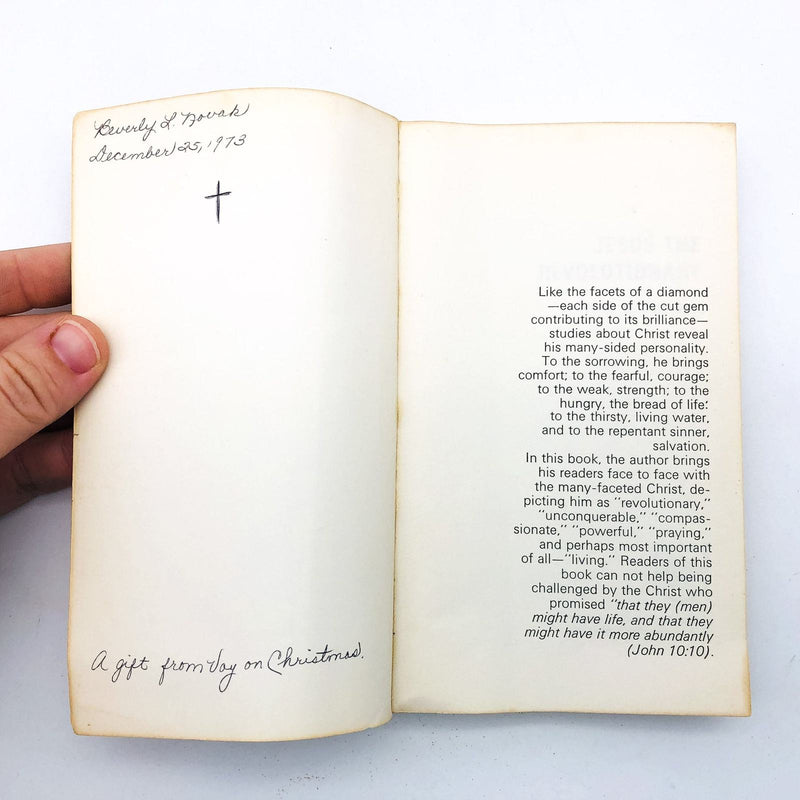 Beverly L. Novak
December 25, 1973
A gift from Vay on Christmas.
JESUS THE
REVOLUTIONARY
Like the facets of a diamond
—each side of the cut gem
contributing to its brilliance—
studies about Christ reveal
his many-sided personality.
To the sorrowing, he brings
comfort; to the fearful, courage;
to the weak, strength; to the
hungry, the bread of life;
to the thirsty, living water,
and to the repentant sinner,
salvation.
In this book, the author brings
his readers face to face with
the many-faceted Christ, de-
picting him as "revolutionary,"
"unconquerable," "compas-
sionate," "powerful," "praying,"
and perhaps most important
of all—"living." Readers of this
book can not help being
challenged by the Christ who
promised "that they (men)
might have life, and that they
might have it more abundantly
(John 10:10).